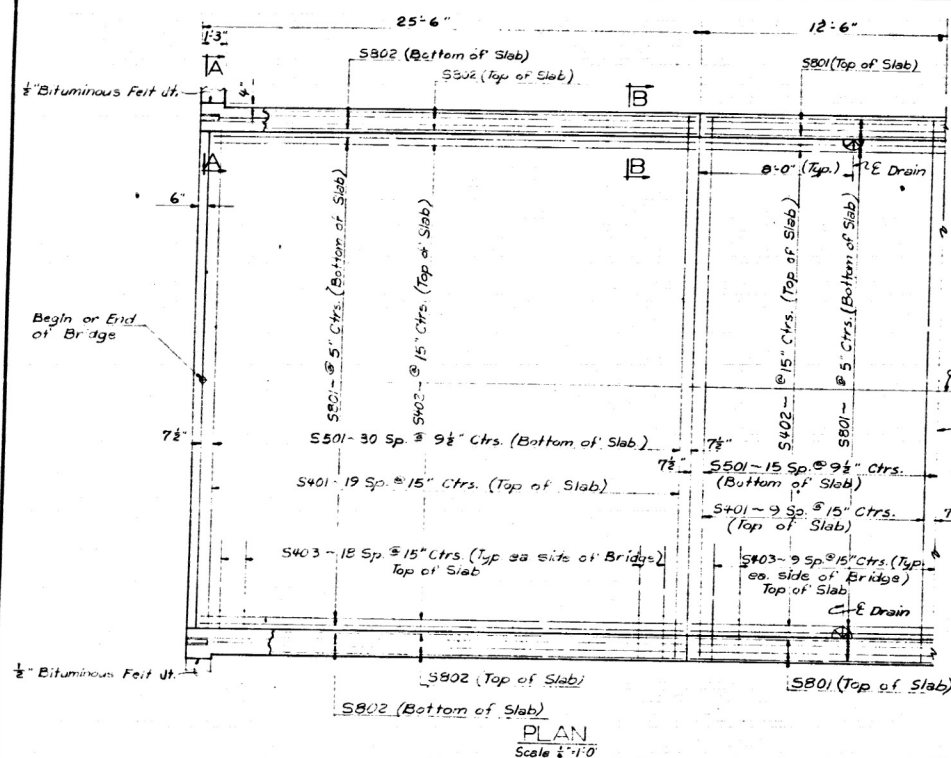 25'-6"
12'-6"
1'-3"
S802 (Bottom of Slab)
S802 (Top of Slab)
S801 (Top of Slab)
A
B
4"
½" Bituminous Felt Jt.
A
B
8'-0" (Typ.)
℄ Drain
6"
S801~ @ 5" Ctrs. (Bottom of Slab)
S402~ @ 15" Ctrs. (Top of Slab)
S402~ @ 15" Ctrs. (Top of Slab)
S801~ @ 5" Ctrs. (Bottom of Slab)
Begin or End
of Bridge
7½"
S501-30 Sp. @ 9½" Ctrs. (Bottom of Slab)
7½"
7½"
S501~15 Sp. @ 9½" Ctrs.
(Bottom of Slab)
S401-19 Sp. @ 15" Ctrs. (Top of Slab)
S401~9 Sp. @ 15" Ctrs.
(Top of Slab)
S403~18 Sp. @ 15" Ctrs. (Typ ea side of Bridge)
Top of Slab
S403~9 Sp. @ 15" Ctrs. (Typ.
ea. side of Bridge)
Top of Slab
℄ Drain
½" Bituminous Felt Jt.
S802 (Top of Slab)
S801 (Top of Slab)
S802 (Bottom of Slab)
PLAN